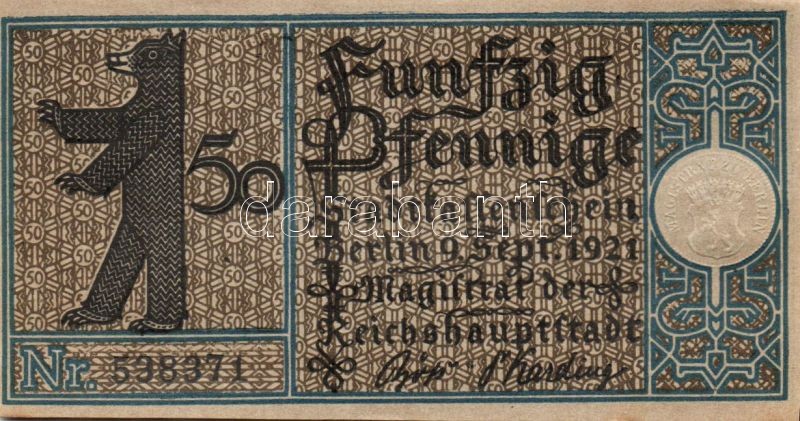 50
Fünfzig
Pfennige
Stadtkassenschein
Berlin 9. Sept. 1921
Magistrat der
Reichshauptstadt
Nr. 538371
MAGISTRAT ZU BERLIN
darabanth